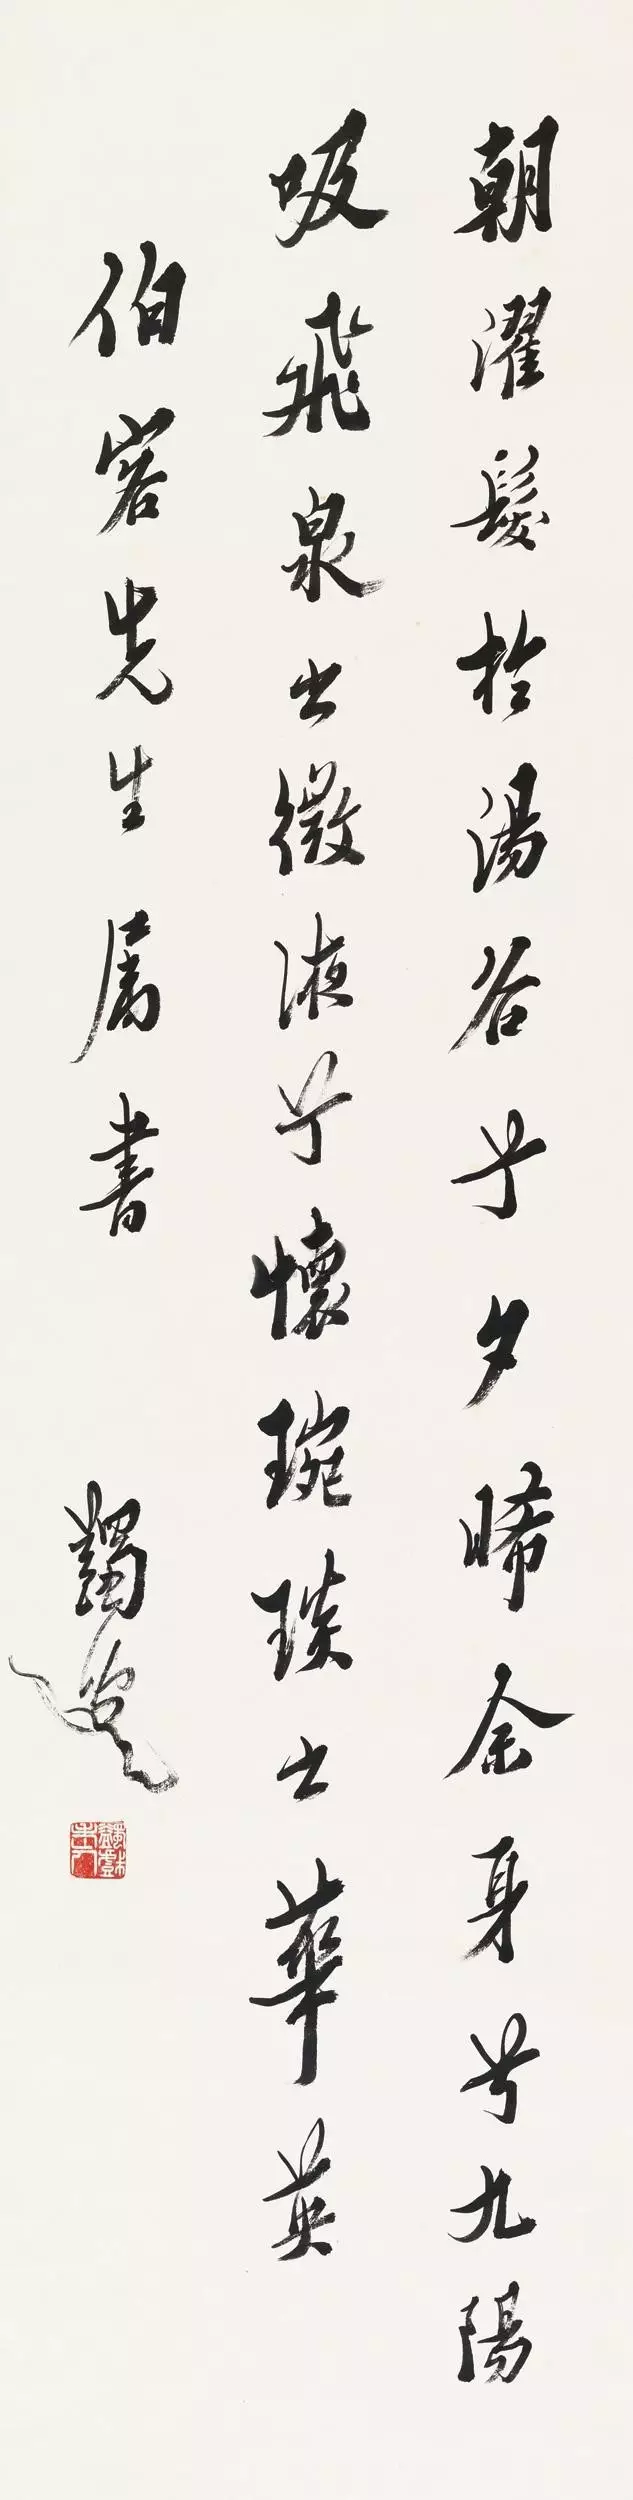 朝濯髮於湯谷兮夕晞余身兮九陽
吸飛泉之微液兮懷琬琰之華英
伯容先生屬書
蠲叟